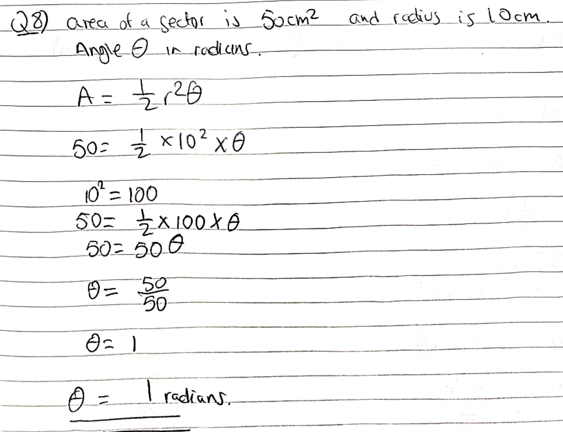 Q8) area of a sector is 50cm² and radius is 10cm.
Angle θ in radians.
A = 1/2 r²θ
50= 1/2 ×10² ×θ
10² = 100
50= 1/2 ×100×θ
50= 50θ
θ= 50/50
θ= 1
θ = 1 radians.